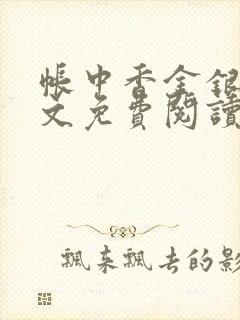 帳中香金銀
文免費閱讀
飄來飄去的影